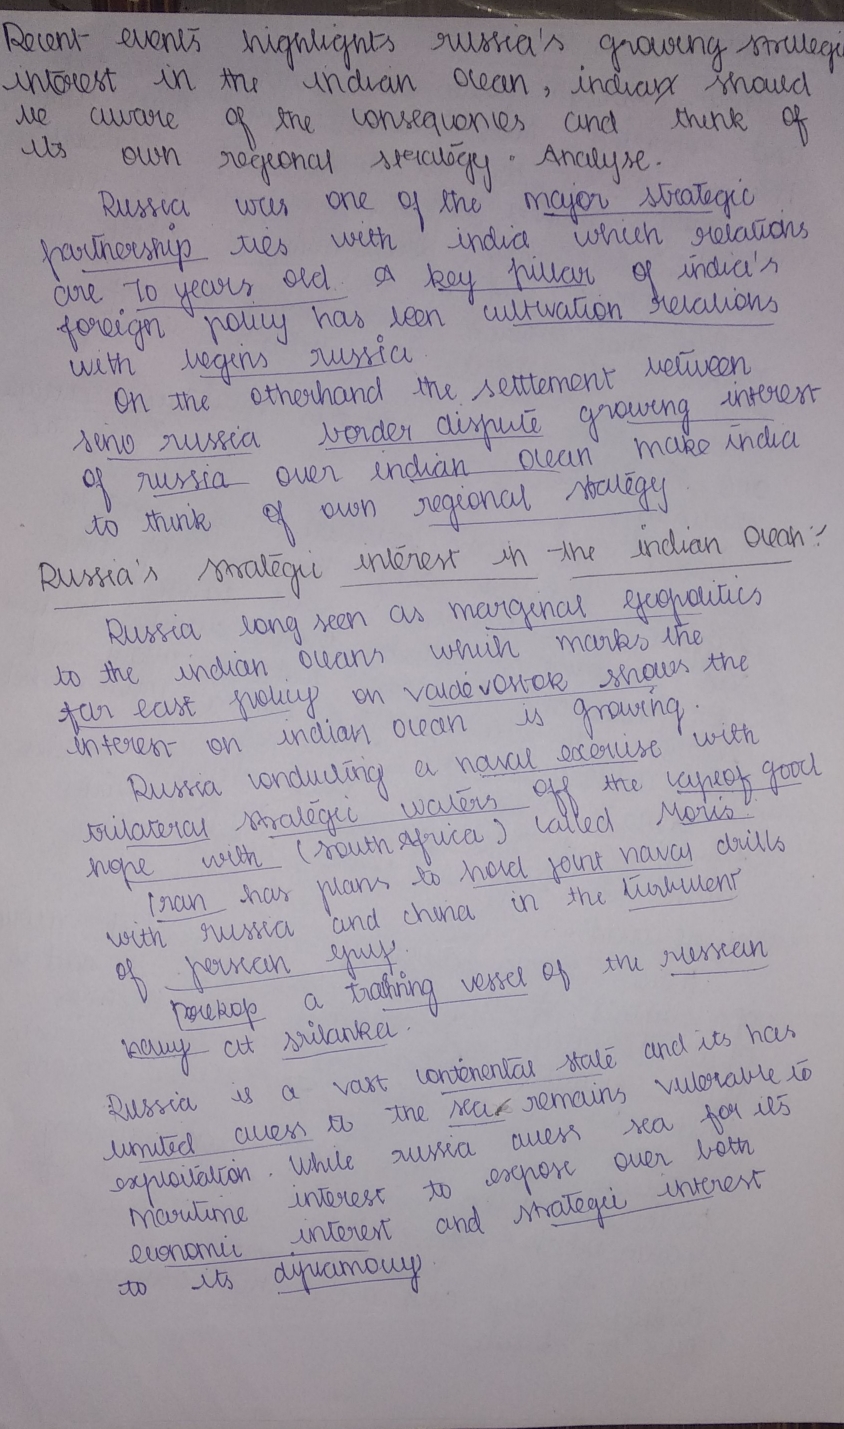 Recent events highlights russia's growing strategi
interest in the indian ocean, indian should
be aware of the consequences and think of
its own regional strategy. Analyse.
Russia was one of the major strategic
partnership ties with india which relations
are 70 years old. A key pillar of india's
foreign policy has seen cultivation relations
with begins russia.
On the otherhand the settlement between
sino russia border dispute growing interest
of russia over indian ocean make india
to think of own regional stategy
Russia's strategic interest in the indian Ocean:-
Russia long seen as marginal geopolitics
to the indian oceans which marks the
far east policy on vladevostok shows the
interest on indian ocean is growing.
Russia conducting a naval exercise with
trilateral strategic waters off the cape of good
hope with (south Africa) called Moris.
Iran has plans to hold joint naval drills
with russia and china in the turbulent
of persian gulf.
a training vessel of the russian
navy at srilanka.
Russia is a vast continental state and its has
limited access to the sea remains vulerable to
exploitation. While russia access sea for its
maritime interest to expose over both
economic interest and strategic interest
to its diplamouy.